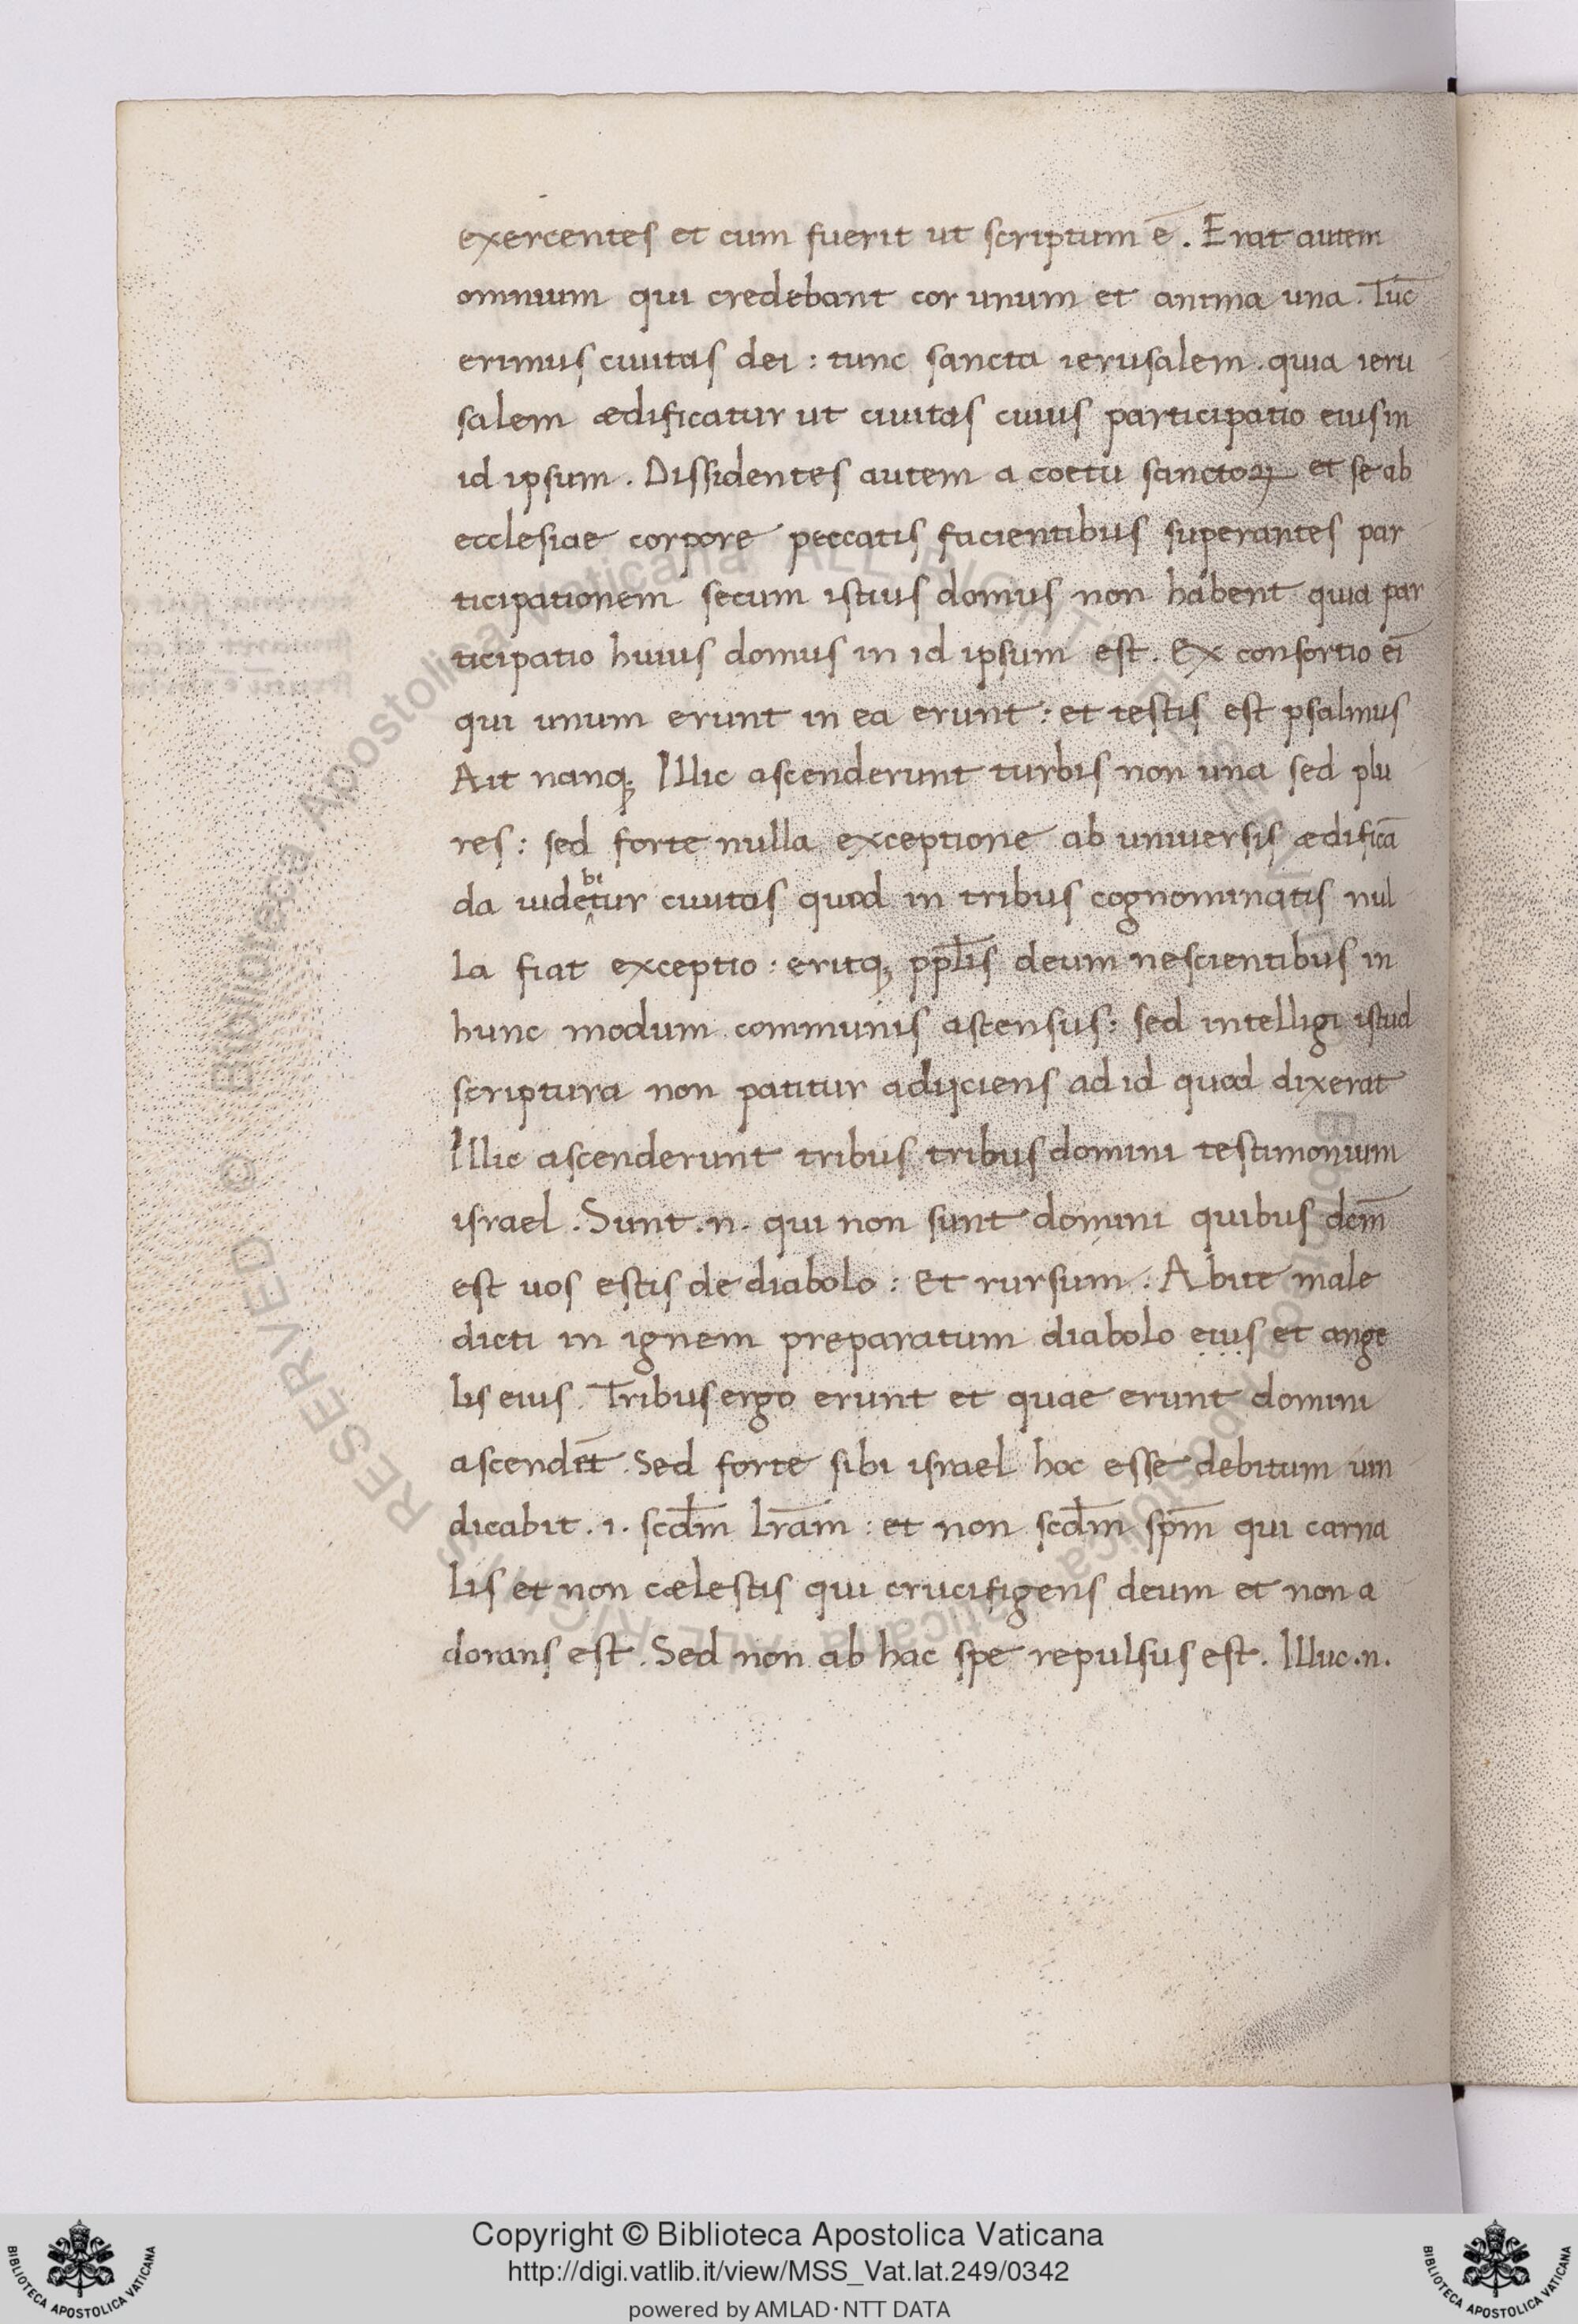 exercentes et cum fuerit ut scriptum ē. Erat autem
omnium qui credebant cor unum et anima una. Tūc
erimus ciuitas dei : tunc sancta ierusalem. quia ieru
salem ædificatur ut ciuitas cuius participatio eius in
id ipsum. Dissidentes autem a coetu sanctoꝝ et se ab
ecclesiae corpore peccatis facientibus superantes par
ticipationem secum istius domus non habent quia par
ticipatio huius domus in id ipsum est. Ex consortio ei̅
qui unum erunt in ea erunt : et testis est psalmus
Ait nanq; Illic ascenderunt turbis non una sed plu
res : sed forte nulla exceptione ab uniuersis ædificā
da uidebitur ciuitas quod in tribus cognominatis nul
la fiat exceptio : eritq; ppl̅is deum nescientibus in
hunc modum communis ascensus : sed intelligi istud
scriptura non patitur adijciens ad id quod dixerat
Illic ascenderunt tribus tribus domini testimonium
israel. Sunt .n. qui non sunt domini quibus dcm̅
est uos estis de diabolo : Et rursum. Abite male
dicti in ignem preparatum diabolo eius et ange
lis eius. Tribus ergo erunt et quae erunt domini
ascendēt. Sed forte sibi israel hoc esse debitum uin
dicabit. i. scd̅m lr̅am : et non scd̅m sp̅m qui carna
lis et non cælestis qui crucifigens deum et non a
dorans est. Sed non ab hac spe repulsus est. Illuc .n.
Biblioteca Apostolica Vaticana ALL RIGHTS RESERVED ©
Copyright © Biblioteca Apostolica Vaticana
http://digi.vatlib.it/view/MSS_Vat.lat.249/0342
powered by AMLAD·NTT DATA
BIBLIOTECA APOSTOLICA VATICANA
BIBLIOTECA APOSTOLICA VATICANA